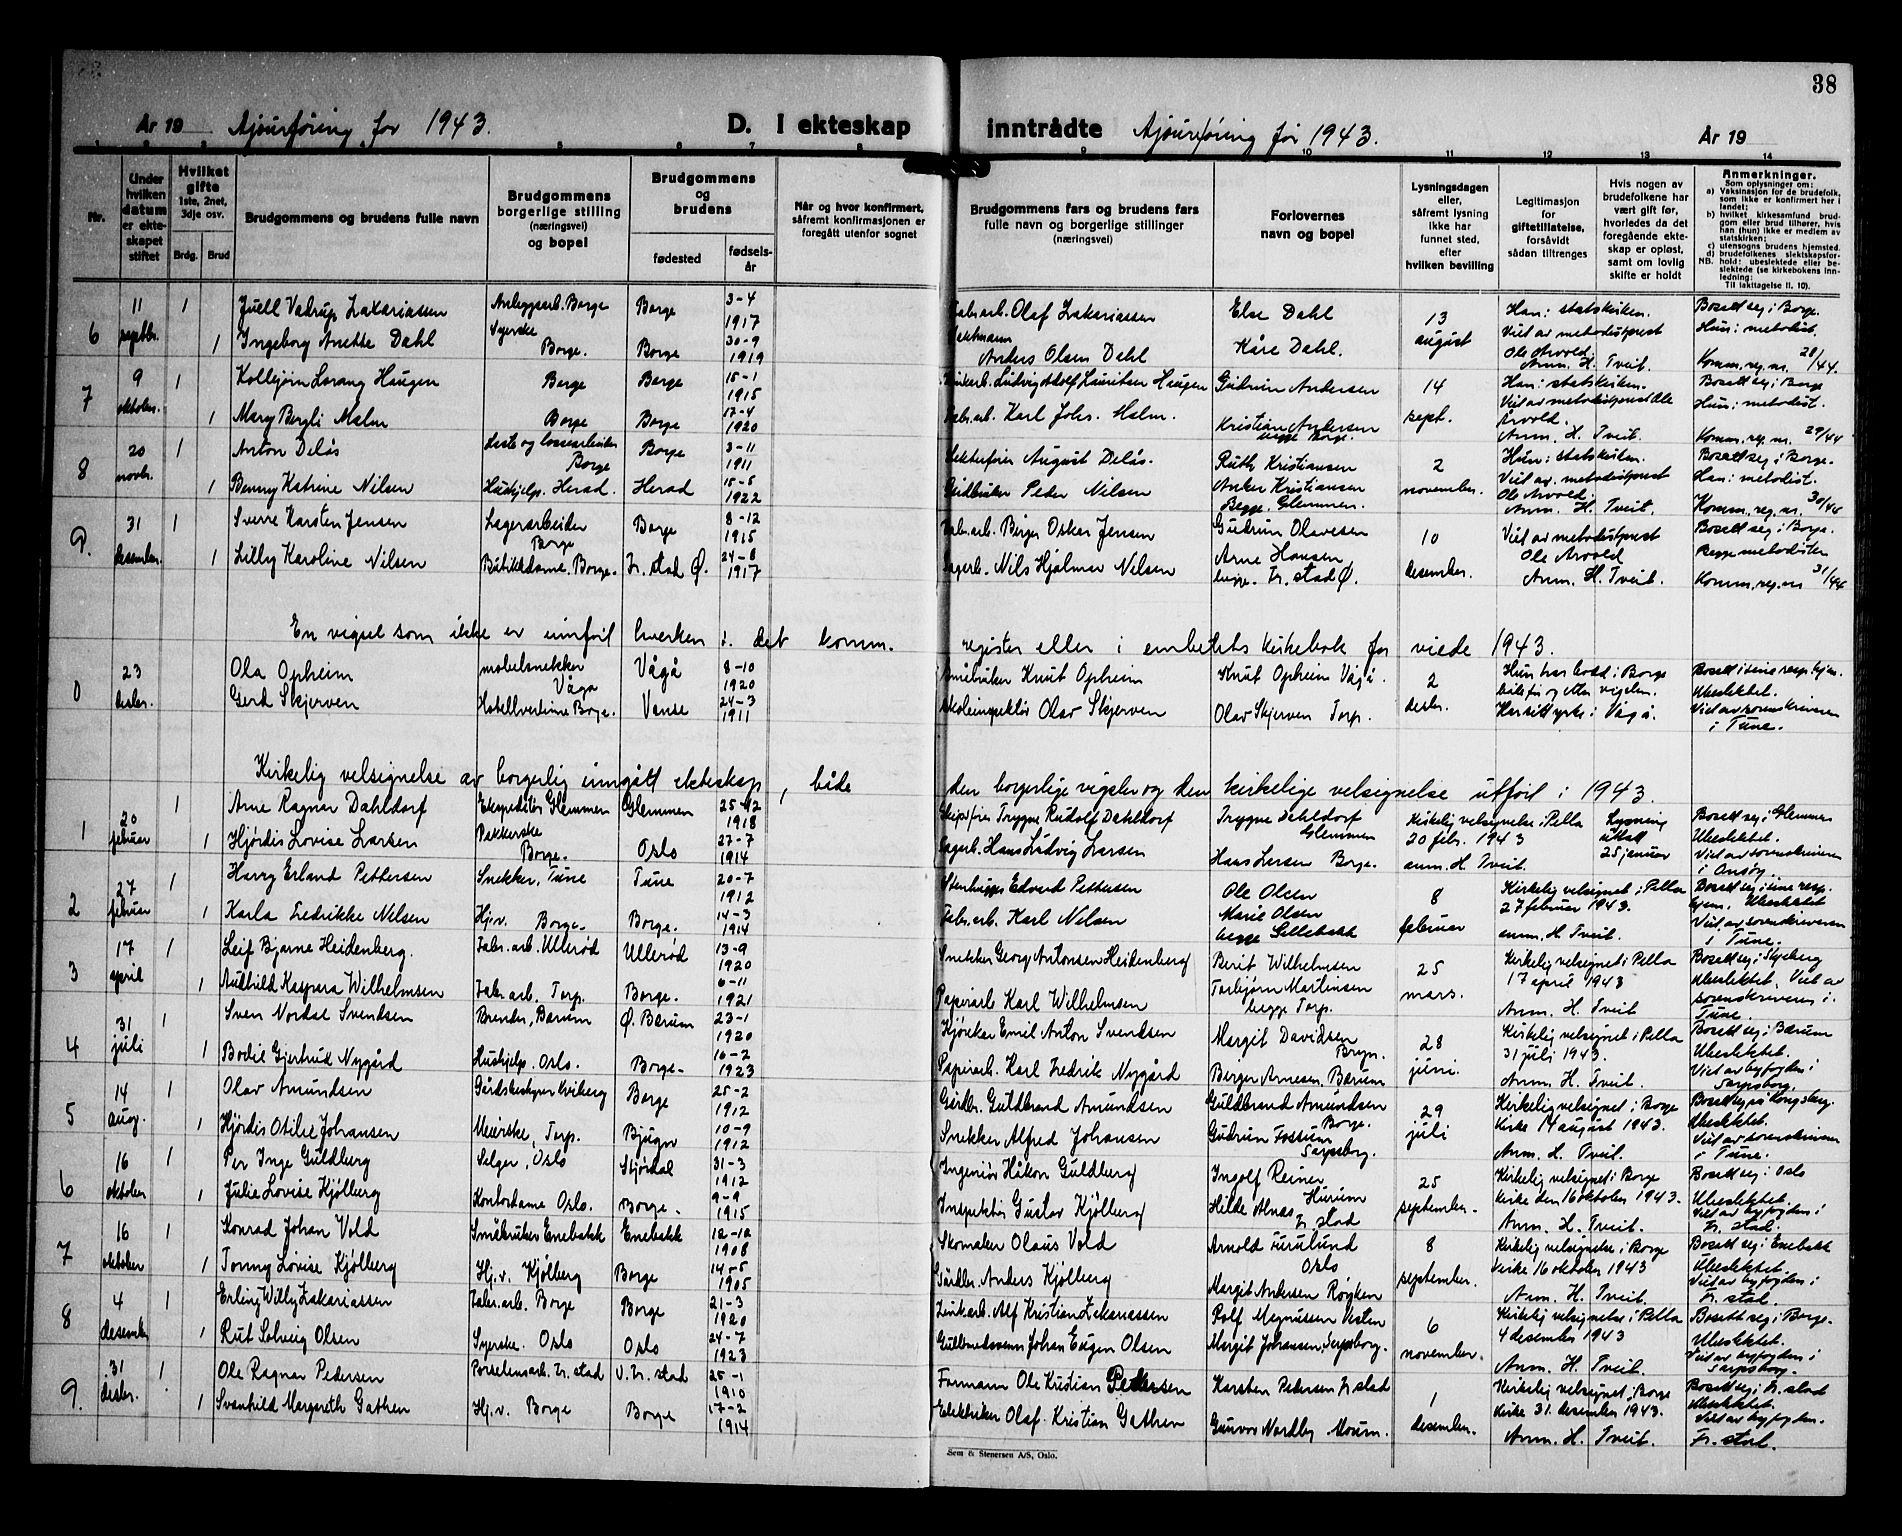 38
År 19 Ajourføring for 1943. D. I ekteskap
inntrådte Ajourføring for 1943. År 19
Nr.
Under hvilken datum er ekteskapet stiftet
Hvilket gifte 1ste, 2net, 3dje osv.
Brdg. Brud
Brudgommens og brudens fulle navn
Brudgommens borgerlige stilling (næringsvei) og bopel
Brudgommens og brudens
fødested
fødselsår
Når og hvor konfirmert, såfremt konfirmasjonen er foregått utenfor sognet
Brudgommens fars og brudens fars fulle navn og borgerlige stillinger (næringsvei)
Forlovernes navn og bopel
Lysningsdagen eller, såfremt lysning ikke har funnet sted, efter hvilken bevilling
Legitimasjon for giftetillatelse, forsåvidt sådan tiltrenges
Hvis nogen av brudefolkene har vært gift før, hvorledes da det foregående ekteskap er opløst, samt om lovlig skifte er holdt
Anmerkninger.
Som oplysninger om:
a) Vaksinasjon for de brudefolk, som ikke er konfirmert her i landet;
b) hvilket kirkesamfund brudgom eller brud tilhører, hvis han (hun) ikke er medlem av statskirken;
c) utensogns brudens hjemsted.
d) brudefolkenes slektskapsforhold: ubeslektede eller beslektede (se kirkebokens innledning: Til iakttagelse II, 10).
6 11 septbr. 1 Juell Vadrup Zakariassen Anleggsarb. Borge Borge 3-4 1917
1 Ingeborg Anette Dahl Syerske Borge. Borge 30-9 1919
Olaf Zakariassen Else Dahl 13 august Han: statskirken. Bosett seg i Borge.
Anders Olsen Dahl Kåre Dahl. Viet av metodistprest Ole Arvold. Anm. H. Tveit. Hun: metodist. Komm. reg. nr. 28/44.
7 9 oktober. 1 Kolbjørn Lorang Haugen Borge Borge 15-1 1915
1 Mary Bergli Malm Borge Borge 17-4 1920
Ludvig Adolf Lauritsen Haugen Gudrun Andersen 14 sept. Han: statskirken. Bosett seg i Borge
Fabr.arb. Karl Johs. Malm. Kristian Andersen begge Borge. Viet av metodistprest Ole Arvold. Anm. H. Tveit. Hun: metodist. Komm. reg. nr. 29/44
8 20 novbr. 1 Anton Delås Laste og lossearbeider Borge Borge 3-11 1911
1 Benny Katrine Nilsen Hushjelp. Herad. Herad 15-5 1922
August Delås. Ruth Kristiansen 2 november. Hun: statskirken. Bosett seg i Borge.
Gårdbruker Peder Nilsen Anker Kristiansen Begge Glemmen. Viet av metodistprest Ole Arvold. Anm. H. Tveit. Han: metodist. Komm. reg. nr. 30/44
9. 31 desember. 1 Sverre Karsten Jensen Lagerarbeider Borge Borge 8-12 1915
1 Lilly Karoline Nilsen Butikkdame. Borge. Fr. stad Ø. 24-8 1917
Fabr.arb. Birger Oskar Jensen Gudrun Olavesen 10 desember. Viet av metodistprest Bosett seg i Borge.
Lagerb. Nils Hjalmar Nilsen Arne Hansen begge. Fr. stad Ø. Ole Arvold Anm. H. Tveit. Begge metodister Komm. reg. nr 31/44
En vigsel som ikke er innført hverken i det komm. register eller i embetets kirkebok for viede 1943.
0 23 desbr. Ola Opheim møbelsnekker Vågå Vågå 8-10 1920
Gerd Skjerven Hotellvertinne Borge. Vanse 24-3 1911
Småbruker Knut Opheim Knut Opheim Vågå. 2 desbr. Hun har bodd i Borge både før og etter vigslen. Bosett i sine resp. hjem. Ubeslektet.
Skoleinspektør Olav Skjerven Olav Skjerven Torp. Har sitt yrke i Vågå. Viet av sorenskriveren i Tune.
Kirkelig velsignelse av borgerlig inngått ekteskap, både den borgerlige vigsler og den kirkelige velsignelse utført i 1943.
1 20 februar 1 Arne Ragnar Dahldorf Ekspeditør Glemmen Glemmen 25-12 1918
1 Hjørdis Lovise Larsen Pakkerske Borge. Oslo 27-7 1914
Trygve Rudolf Dahldorf Trygve Dahldorf Glemmen Kirkelig velsignelse i Pella 20 febr. 1943 Lysning utstedt 25 januar Bosett seg i Glemmen
Lagerb. Hans Ludvig Larsen Hans Larsen Borge. anm. H. Tveit. Ubeslektet. Viet av sorenskriveren i Onsøy.
2 27 februar 1 Harry Erland Pettersen Snekker, Tune Tune 20-7 1912
1 Karla Fredrikke Nilsen Hj.v. Borge. Borge. 14-3 1914
Stenhugger Edvard Pettersen Ole Olsen 8 februar Kirkelig velsignet i Pella 27 februar 1943. Bosett seg i sine resp. hjem. Ubeslektet
Fabr.arb. Karl Nilsen Marie Olsen begge Sellebakk anm. H. Tveit. Viet av sorenskriveren i Tune.
3 17 april 1 Leif Bjarne Heidenberg. Fabr.arb. Ullerød Ullerød 13-9 1920
1 Audhild Kaspara Wilhelmsen Fabr.arb. Torp. Borge. 6-11 1921
Snekker Georg Antonsen Heidenberg Berit Wilhelmsen 25 mars. Kirkelig velsignet i Pella 17 april 1943 Bosett seg i Skjeberg
Papirarb Karl Wilhelmsen Torbjørn Martinsen begge Torp. Anm. H. Tveit Ubeslektet. Viet av sorenskriveren i Tune.
4 31 juli 1 Sven Nordal Svendsen Brenner, Bærum Ø. Bærum 23-1 1920
1 Bodil Gjertrud Nygård Hushjelp. Oslo. Borge. 16-2 1923
Kjørekar Emil Anton Svendsen Margit Davidsen 28 juni. Kirkelig velsignet i Pella 31 juli 1943. Bosett seg i Bærum
Papirarb. Karl Fredrik Nygård Berger Arnesen. Bærum Anm. H. Tveit. Ubeslektet. Viet av byfogden i Sarpsborg.
5 14 aug. 1 Olav Amundsen Borge 25-2 1912
1 Hjørdis Otilie Johansen Meierske, Torp. Bjugn 10-9 1912
Gårdbr. Guldbrand Amundsen Guldbrand Amundsen Borge. 29 juli Kirkelig velsignet i Borge kirke 14 august 1943. Bosett seg på Kongsberg.
Snekker Alfred Johansen Gudrun Fossum Sarpsborg. Anm. H. Tveit. Ubeslektet Viet av sorenskriveren i Tune.
6 16 oktober 1 Per Inge Guldberg Selger, Oslo Stjørdal 31-3 1912
1 Julie Lovise Kjølberg Kontordame Oslo. Borge. 9-9 1915
Ingeniør Håkon Guldberg Ingolf Reiner Hurum 25 september. Kirkelig velsignet i Borge kirke den 16 oktober 1943. Bosett seg i Oslo
Inspektør Gustav Kjølberg Hilde Alnæs Fr. stad Anm. H. Tveit. Ubeslektet. Viet av byfogden i Fr. stad.
7 16 oktober 1 Konrad Johan Vold Småbruker Enebakk Enebakk 12-12 1908
1 Tonny Lovise Kjølberg Hj.v. Kjølberg Borge 14-5 1905
Skomaker Olaus Vold Arnold Furulund Oslo 8 september. Kirkelig velsignelse i Borge kirke 16 oktober 1943 Bosett seg i Enebakk
Gårdbr. Anders Kjølberg Margit Andersen Røyken Anm. H. Tveit. Ubeslektet. Viet av byfogden i Fr. stad.
8 4 desember 1 Erling Willy Zakariassen Fabr.arb. Borge Borge 21-3 1920
1 Rut Solveig Olsen Syerske. Oslo Oslo 24-7 1923
Zinkarb. Alf Kristian Zakariassen Rolf Magnussen 6 november. Kirkelig velsignelse i Pella 4 desember 1943 Bosett seg i Borge.
Gullsmedsvenn Johan Eugen Olsen Margit Johansen, Sarpsborg. Anm. H. Tveit. Ubeslektet. Viet av byfogden i Sarpsborg.
9. 31 desbr. 1 Ole Ragnar Pedersen Porselensarb. Fr. stad V. Fr. stad 25-1 1910
1 Svanhild Margreth Gathen Hj.v. Borge Borge 17-2 1914
Formann Ole Kristian Pettersen Karsten Pedersen Fr stad 1 desember. Kirkelig velsignet i Borge kirke 31. desember 1943. Bosett seg i Fr. stad
Elektriker Olaf Kristian Gathen Gunvor Nordby Moum. Anm. H. Tveit. Ubeslektet. Viet av byfogden. Fr. stad.
Sem & Stenersen A/S, Oslo.